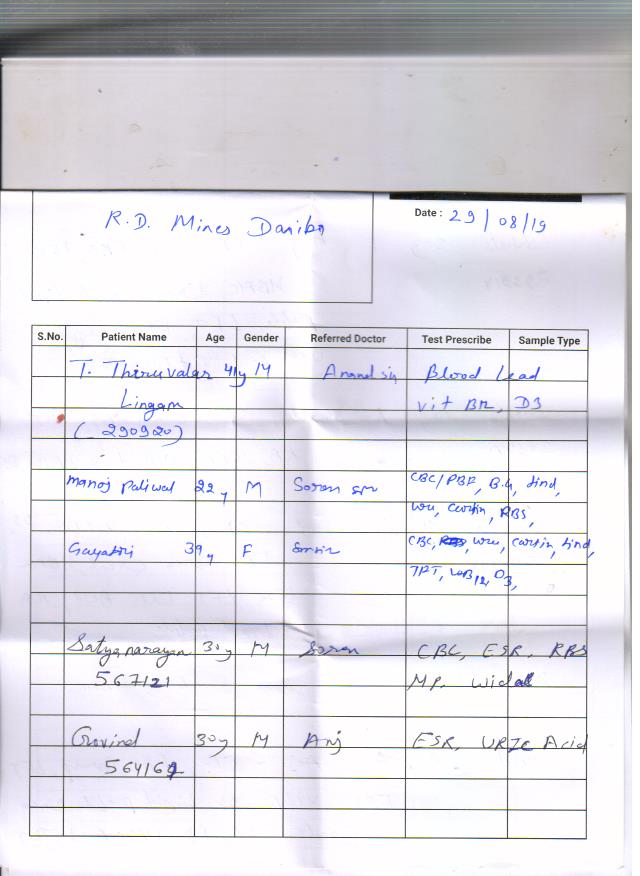 R.D. Mines Dariba
Date : 29/08/19
S.No. Patient Name Age Gender Referred Doctor Test Prescribe Sample Type
T. Thiruvalar 41y M Anand sir Blood Lead
Lingam vit B12, D3
(290920)
Manoj Paliwal 22y M Soren sir CBC/PBF, B.G,
RBS,
Gayatri 39y F CBC, RBS,
B12, D3,
Satyanarayan 30y M Soren CBC, ESR, RBS
567121 MP, Widal
Govind 30y M ESR, URIC Acid
564169